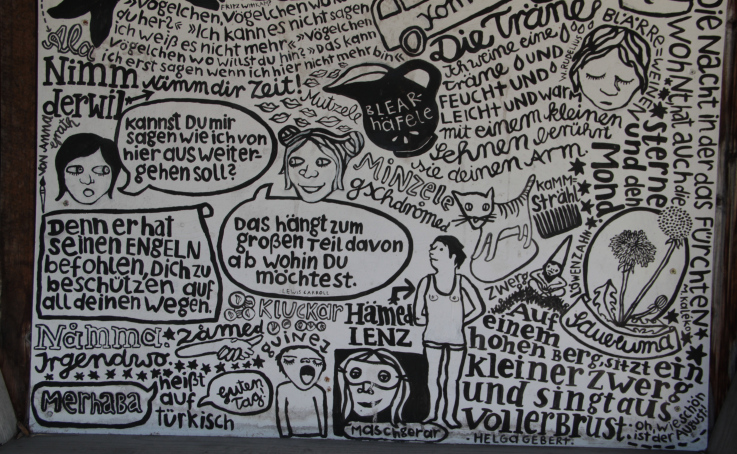 Vögelchen, Vögelchen wo
du her?« »Ich kann es nicht sagen
ich weiß es nicht mehr«. »Vögelchen
Vögelchen wo willst du hin? »Das kann
ich erst sagen wenn ich hier nicht mehr bin«
Nimm nimm dir Zeit!
derwil
kannst Du mir
sagen wie ich von
hier aus weiter-
gehen soll?
BLEAR-
häfele
Die Träne
Ich weine eine
träne und
FEUCHT UND
LEICHT UND warm
mit einem kleinen
Sehnen berührt
sie deinen Arm.
BLÄRRE=WEINEN
MINZELE
gschdromed
KAMM=
Strähl
Die Nacht in der das Fürchten
wohnt hat auch die
Sterne
und den
Mond
Denn er hat
seinen ENGELN
befohlen, Dich zu
beschützen auf
all deinen Wegen.
Das hängt zum
großen Teil davon
ab wohin Du
möchtest.
LEWIS CARROLL
Zwerg
LÖWENZAHN
Sauruma
KLUCKAR
Hämed
LENZ
Nämma.
zämed
Irgendwo.
guinez
Merhaba
heißt
auf
türkisch
guten
Tag
Maschgerar
Auf
einem
hohen Berg, sitzt ein
kleiner Zwerg
und singt aus
voller Brust:
oh, wie schön
ist der August!
- HELGA GEBERT -